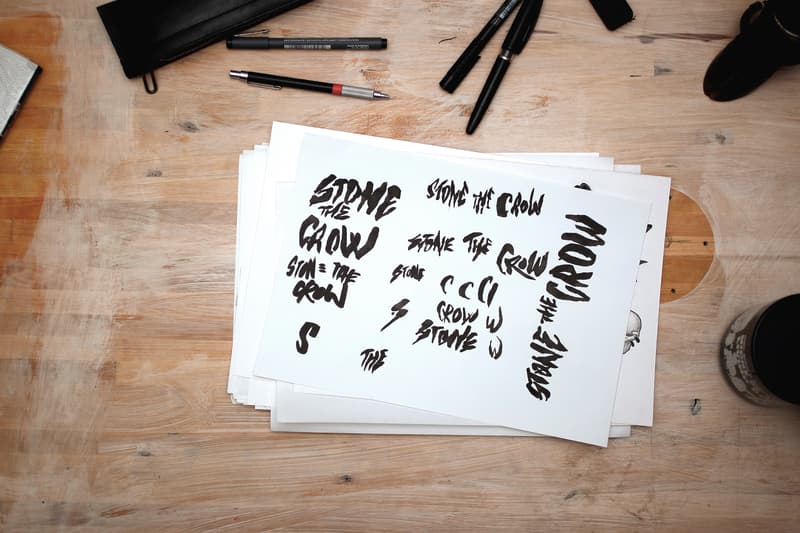 STONE
THE
CROW
STONE THE
CROW
S
THE
STONE THE CROW
STONE THE CROW
STONE
C C C
S
CROW W
STONE W
W
STONE THE CROW